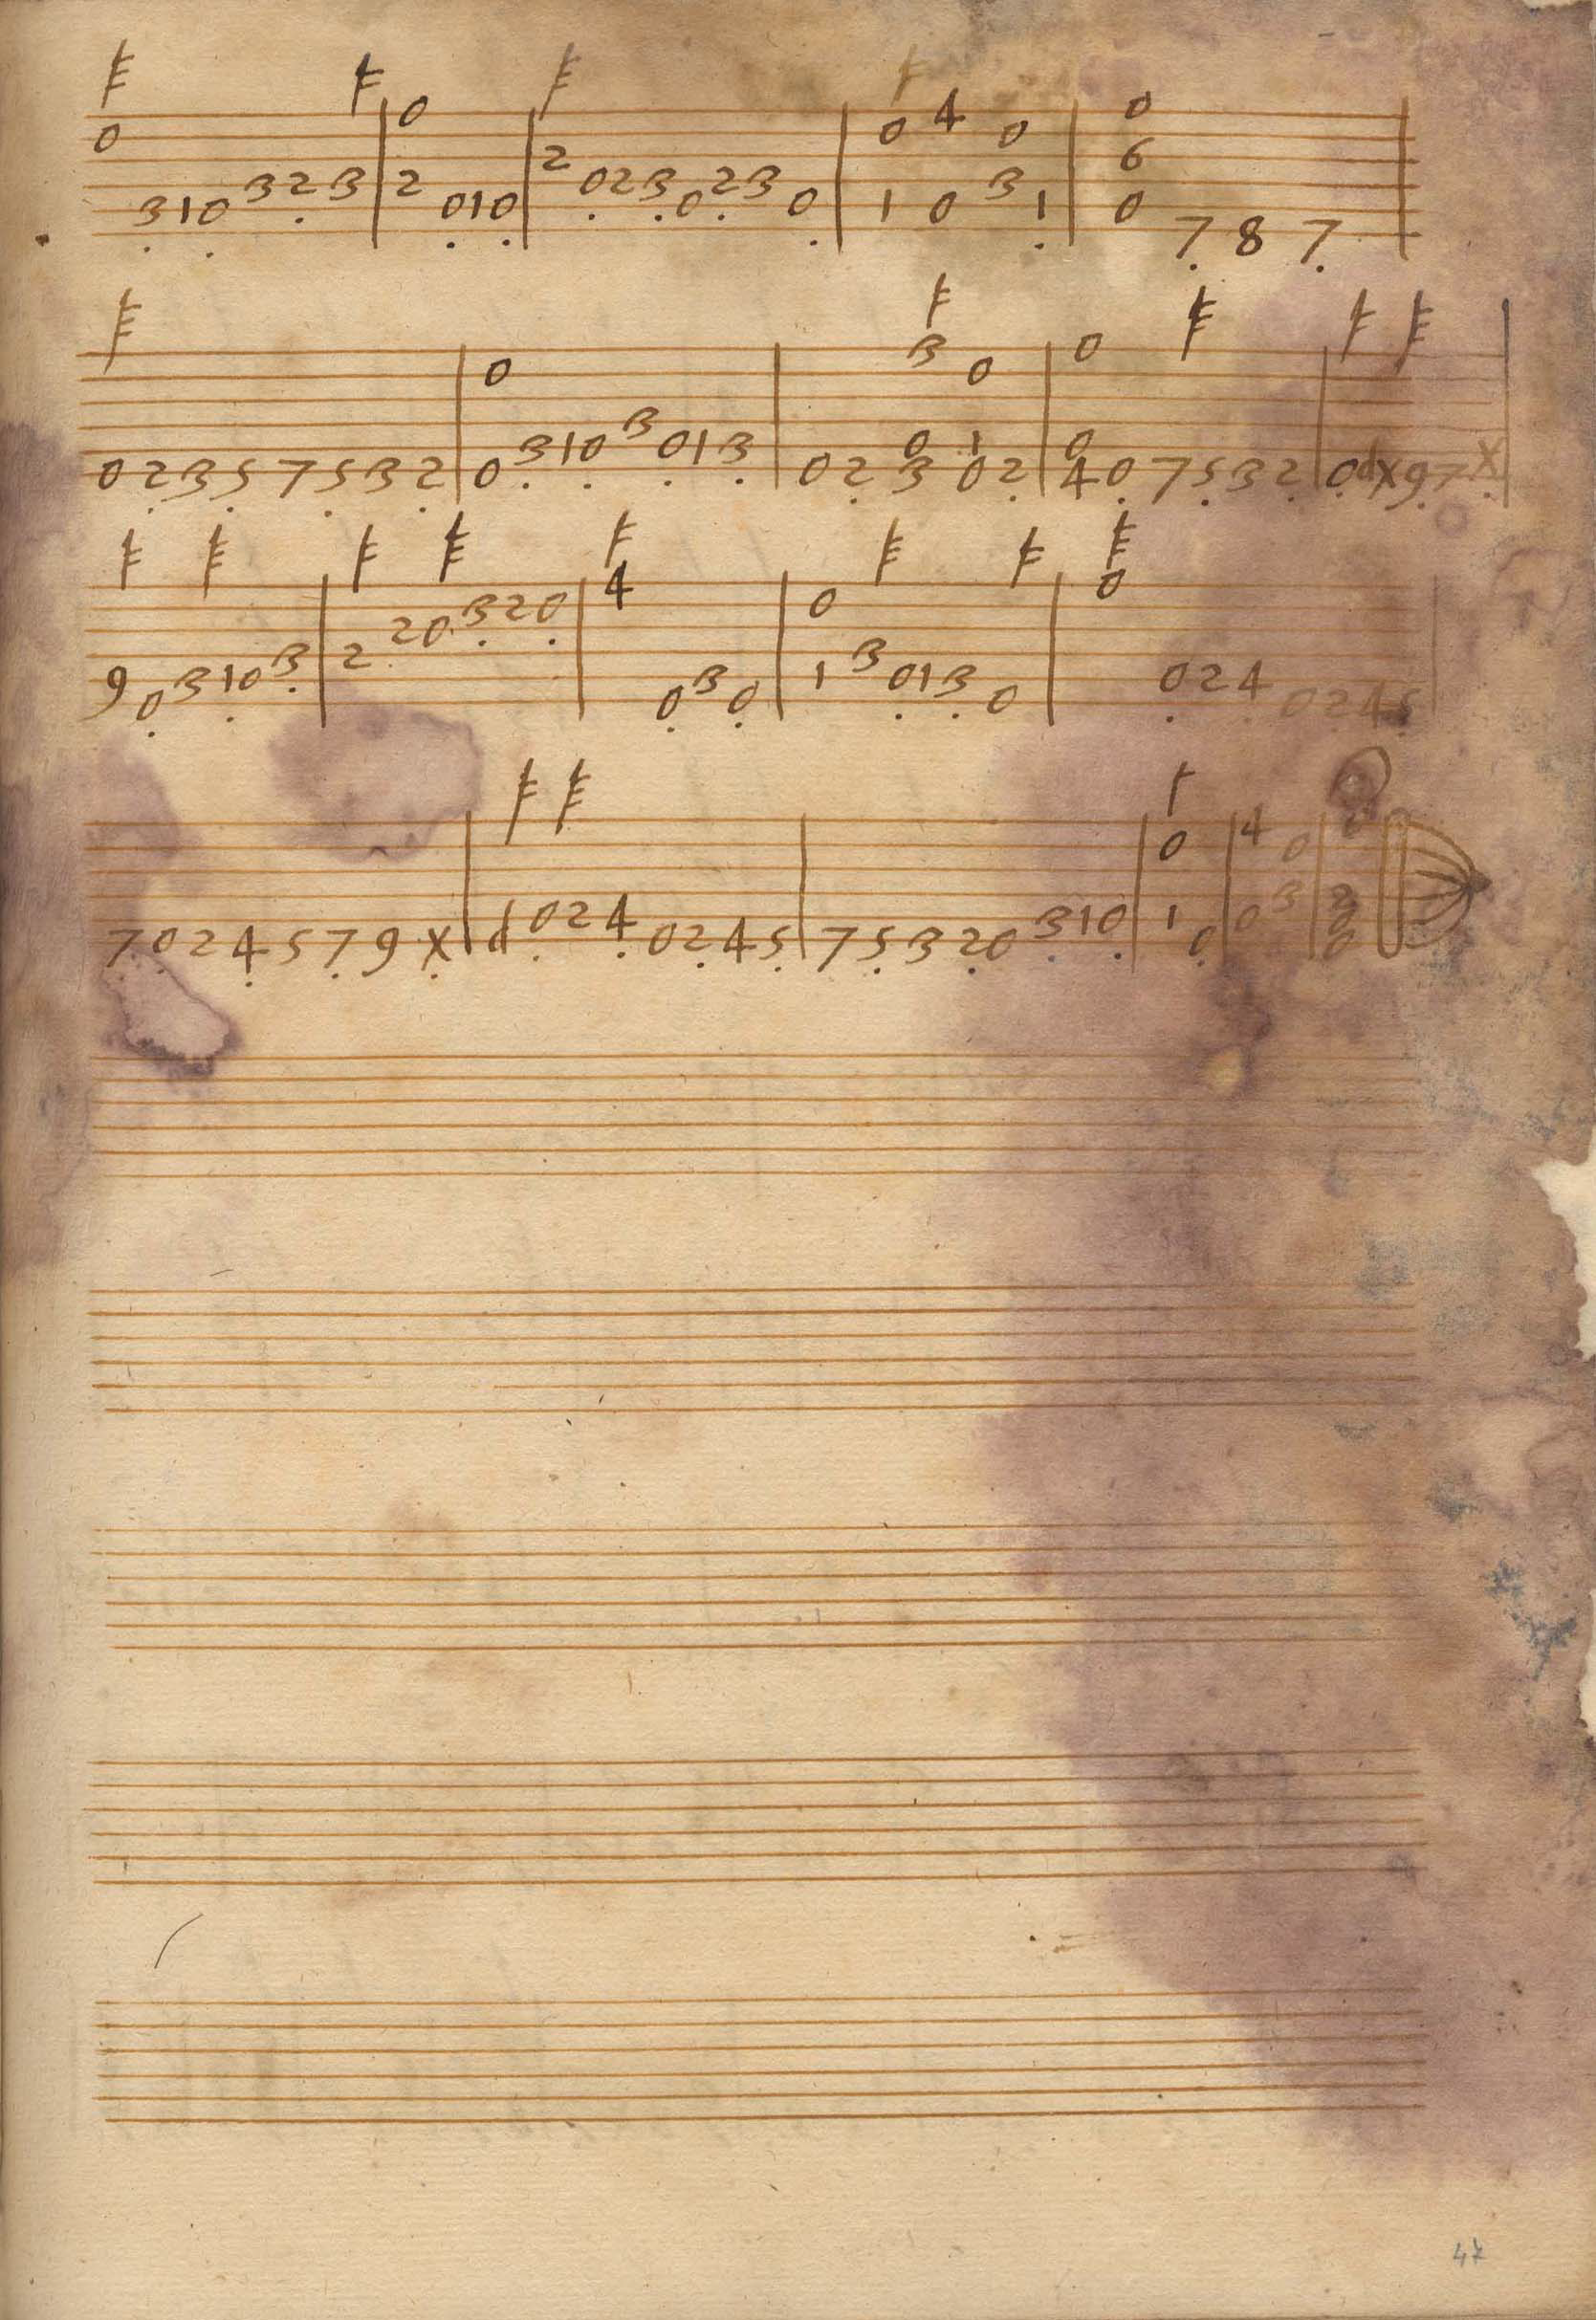 0 3 1 0 3 2 3 | 0 2 0 1 0 | 2 0 2 3 0 2 3 0 | 0 1 4 0 0 3 1 | 0 6 0 7 8 7
0 2 3 5 7 5 3 2 | 0 0 3 1 0 3 0 1 3 | 0 2 3 0 3 0 1 0 2 | 0 0 4 0 7 5 3 2 | 0 d x 9 7 x
9 0 3 1 0 3 | 2 2 0 3 2 0 | 4 0 3 0 | 0 1 3 0 1 3 0 | 0 0 2 4 0 2 4 5
7 0 2 4 5 7 9 x | d 0 2 4 0 2 4 5 | 7 5 3 2 0 3 1 0 | 0 1 0 | 4 0 0 3 | 0 2 0 0
47